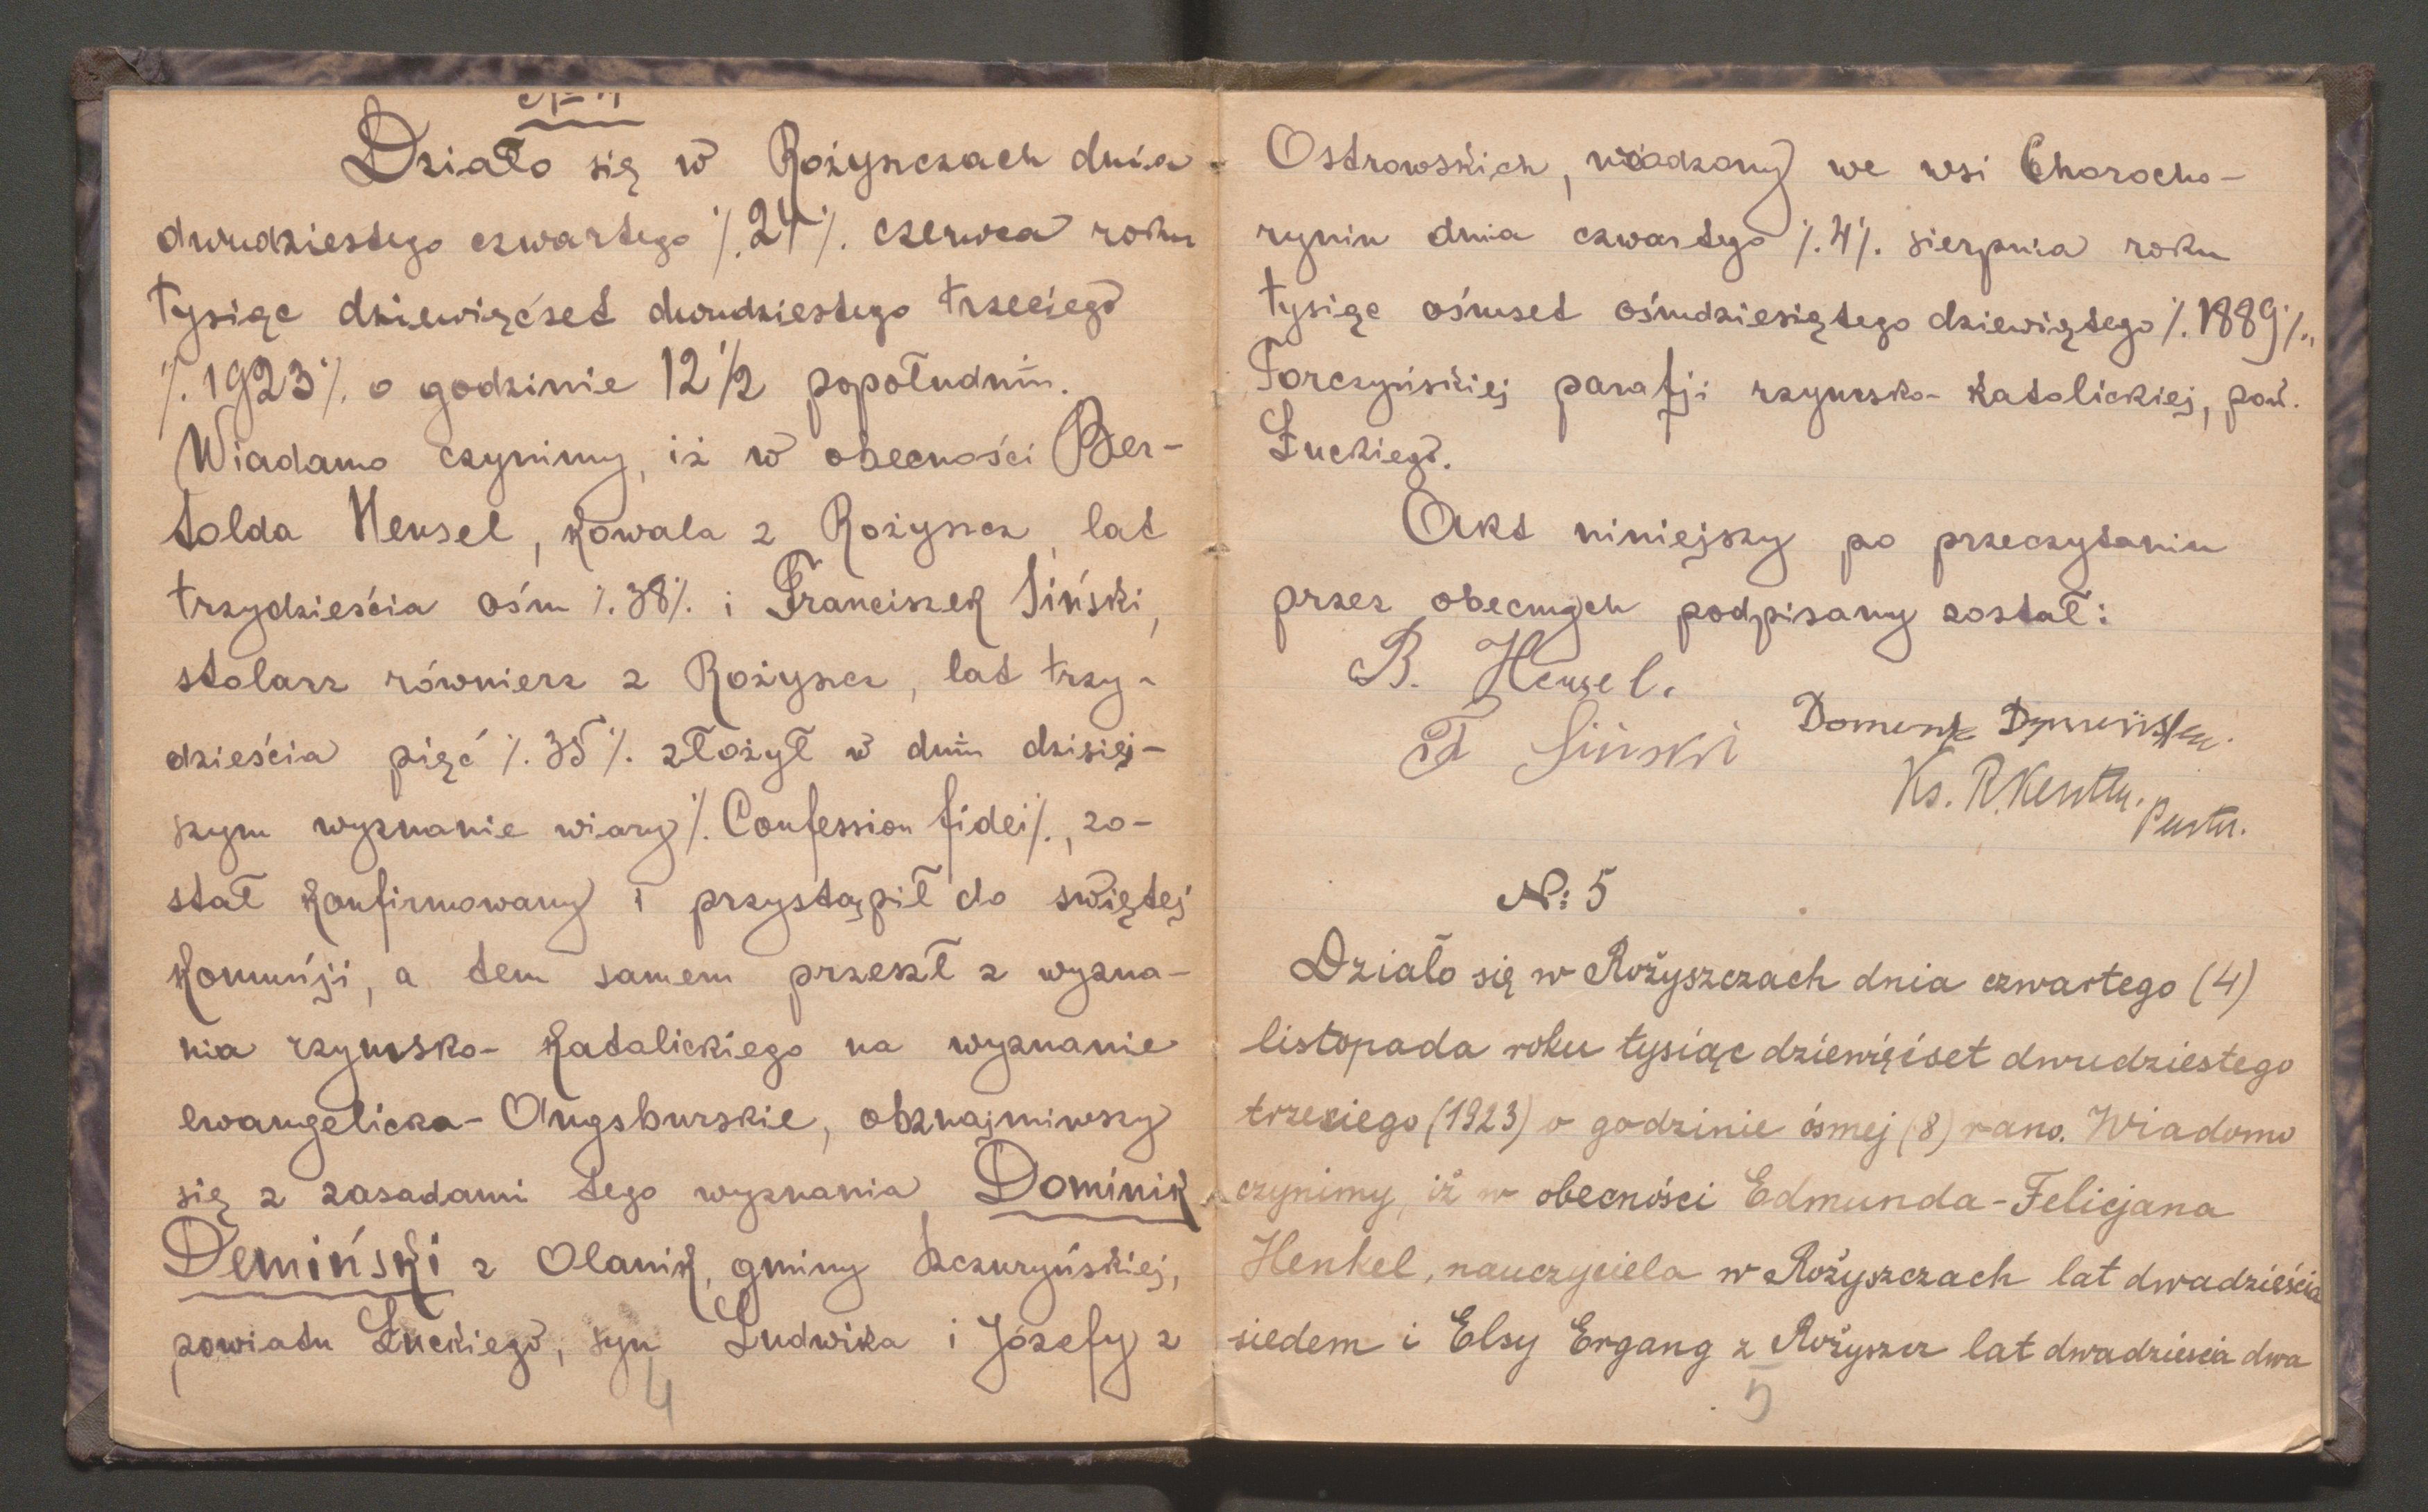 № 4
Działo się w Rożyszczach dnia
dwudziestego czwartego /. 24 /. czerwca roku
tysiąc dziewięćset dwudziestego trzeciego
/. 1923 /. o godzinie 12 1/2 popołudniu.
Wiadamo czynimy, iż w obecności Ber-
tolda Hensel, kowala z Rożyszcz, lat
trzydzieścia ośm /. 38 /. i Franciszek Siński,
stolarz równierz z Rożyszcz, lat trzy-
dzieścia pięć /. 35 /. złożył w dniu dzisiej-
szym wyznanie wiary /. Confession fidei /., zo-
stał konfirmowany i przystąpił do świętej
Komunji, a tem samem przeszł z wyzna-
nia rzymsko- katolickiego na wyznanie
ewangelicko- Augsburskie, obznajmiwszy
się z zasadami tego wyznania Dominik
Demiński z Olanik, gminy Szczuryńskiej,
powiatu Łuckiego, syn Ludwika i Józefy z
4
Ostrowskich, urodzony we wsi Chorocho-
ryniu dnia czwartego /. 4 /. sierpnia roku
tysiąc ośmset ośmdziesiątego dziewiątego /. 1889 /.,
Torczyńskiej parafji rzymsko- katolickiej, pow.
Łuckiego.
Akt niniejszy po przeczytaniu
przez obecnych podpisany został:
B. Hensel.
F Siński
Ks. R. Kersten. Pastor.
№: 5
Działo się w Rożyszczach dnia czwartego (4)
listopada roku tysiąc dziewięćset dwudziestego
trzeciego (1923) o godzinie ósmej (8) rano. Wiadomo
czynimy, iż w obecności Edmunda-Felicjana
Henkel, nauczyciela w Rożyszczach lat dwadzieścia
siedem i Elsy Ergang z Rożyszcz lat dwadzieścia dwa
5